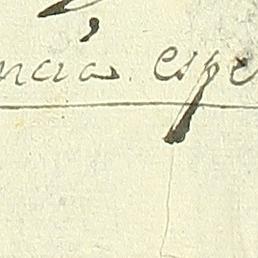 ncia espe